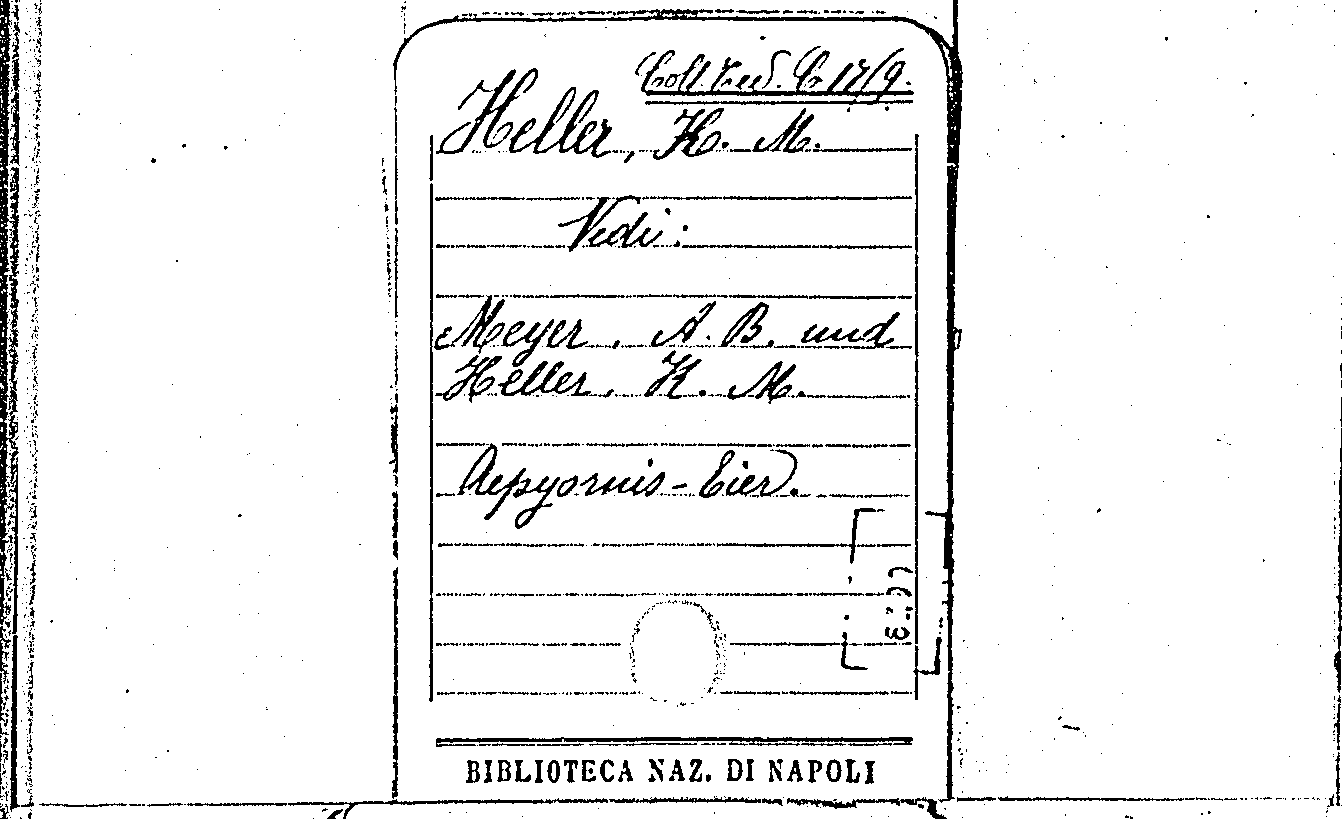 Coll. Ted. C 17/9.
Heller, K. M.
Vedi:
Meyer, A. B. und
Heller, K. M.
Aepyornis-Eier.
BIBLIOTECA NAZ. DI NAPOLI